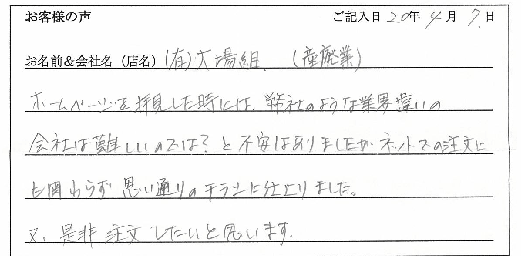 お客様の声 ご記入日 20年 4月 7日
お名前&会社名(店名) (有)大湯組 (産廃業)
ホームページを拝見した時には、弊社のような業界違いの
会社は難しいのでは?と不安はありましたがネットでの注文に
も関わらず思い通りのチラシに仕上りました。
又、是非注文したいと思います。